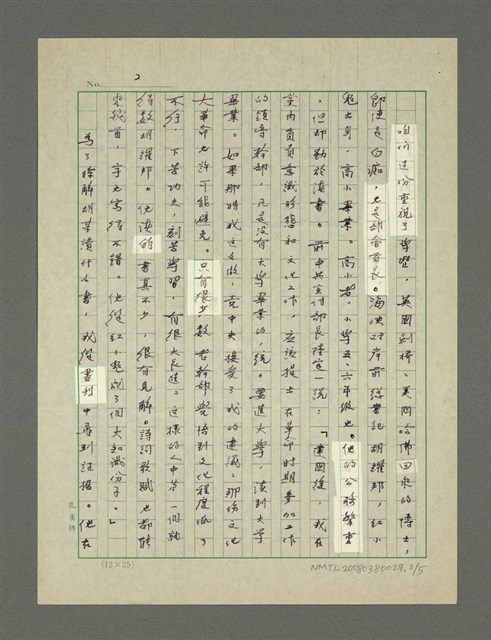 No. 2
咱們這份重視了學歷,英岡劍橋、美岡哈佛回來的博士,
即使是白痴,也是胡會看長。海峽对岸前總書記胡耀邦,紅小
鬼出身,高小畢業。高小者,小學五、六年級也。他的公務繁重
,但却勤於讀書。前中共宣傳部長陸定一說:「建囯後,我在
黨內負責意識形態和文化工作,應該提出在革命时期参加工作
的領導幹部,凡是沒有大學畢業的,統一要進大學,讀到大學
畢業。如果那時我這么做,党中央接受了我的建議,那場文化
大革命也許可能避免。只有很少數老幹部覺悟到文化程度低了
不行,下苦功夫,刻苦學習,有很大長進。這樣的人中第一個就
得数胡耀邦。他讀的書真不少,很有見解。詩詞歌賦也都能
來幾首,字也寫得不錯。他從紅小鬼成了個大知識份子。」
為了瞭解胡某讀什么書,我從書刊中尋到証據。他在
孔雀牌
(12×25)
NMTL20080380029,2/5